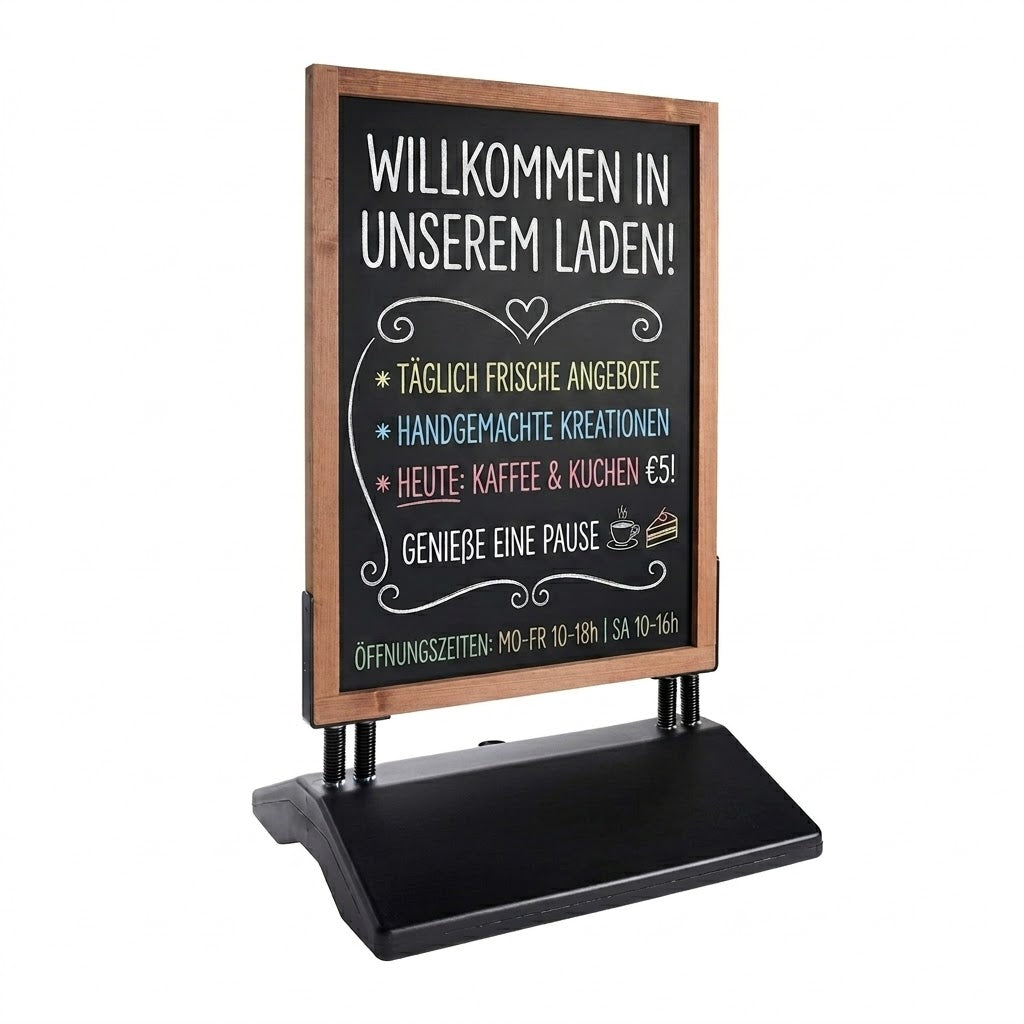 WILLKOMMEN IN
UNSEREM LADEN!
* TÄGLICH FRISCHE ANGEBOTE
* HANDGEMACHTE KREATIONEN
* HEUTE: KAFFEE & KUCHEN €5!
GENIEßE EINE PAUSE
ÖFFNUNGSZEITEN: MO-FR 10-18h | SA 10-16h